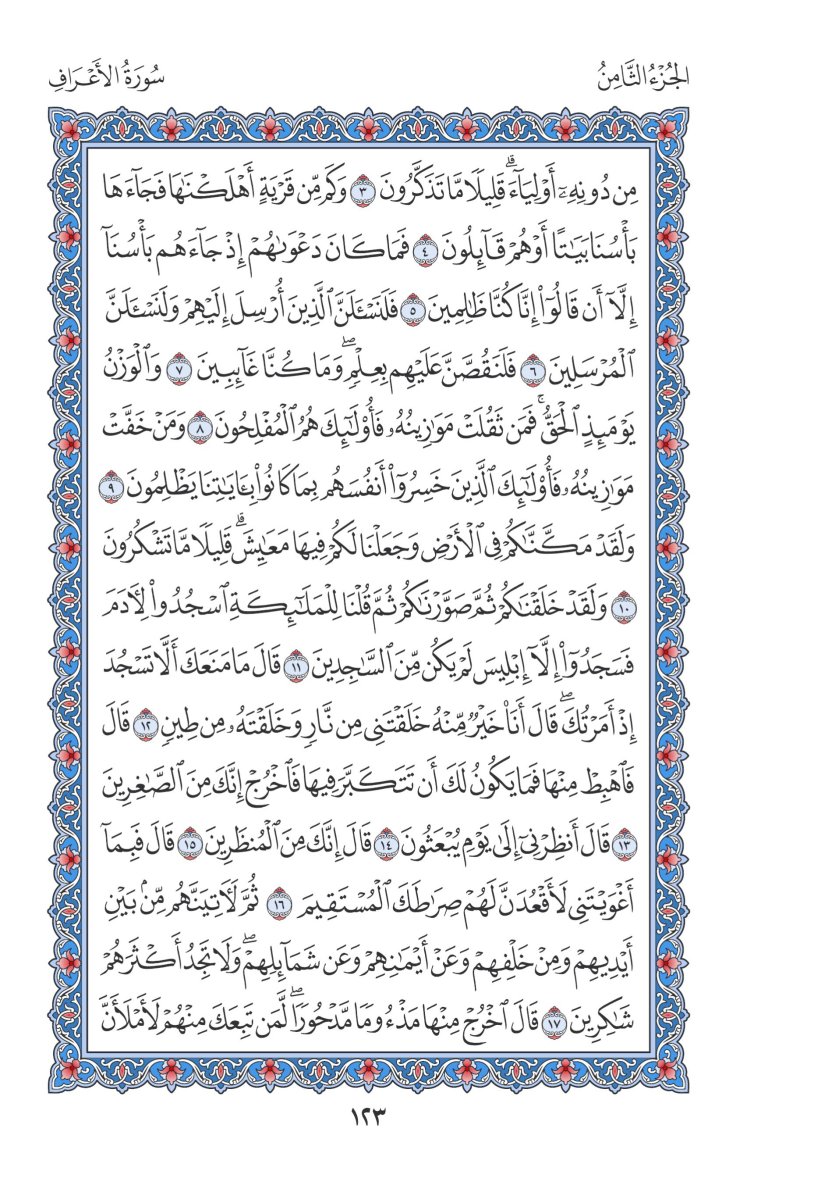 الجُزْءُ الثَّامِنُ
سُورَةُ الأَعْرَافِ
مِن دُونِهِۦٓ أَوْلِيَآءَۗ قَلِيلٗا مَّا تَذَكَّرُونَ ٣ وَكَم مِّن قَرۡيَةٍ أَهۡلَكۡنَٰهَا فَجَآءَهَا
بَأۡسُنَا بَيَٰتًا أَوۡ هُمۡ قَآئِلُونَ ٤ فَمَا كَانَ دَعۡوَىٰهُمۡ إِذۡ جَآءَهُم بَأۡسُنَآ
إِلَّآ أَن قَالُوٓاْ إِنَّا كُنَّا ظَٰلِمِينَ ٥ فَلَنَسۡـَٔلَنَّ ٱلَّذِينَ أُرۡسِلَ إِلَيۡهِمۡ وَلَنَسۡـَٔلَنَّ
ٱلۡمُرۡسَلِينَ ٦ فَلَنَقُصَّنَّ عَلَيۡهِم بِعِلۡمٖۖ وَمَا كُنَّا غَآئِبِينَ ٧ وَٱلۡوَزۡنُ
يَوۡمَئِذٍ ٱلۡحَقُّۚ فَمَن ثَقُلَتۡ مَوَٰزِينُهُۥ فَأُوْلَٰٓئِكَ هُمُ ٱلۡمُفۡلِحُونَ ٨ وَمَنۡ خَفَّتۡ
مَوَٰزِينُهُۥ فَأُوْلَٰٓئِكَ ٱلَّذِينَ خَسِرُوٓاْ أَنفُسَهُم بِمَا كَانُواْ بِـَٔايَٰتِنَا يَظۡلِمُونَ ٩
وَلَقَدۡ مَكَّنَّٰكُمۡ فِي ٱلۡأَرۡضِ وَجَعَلۡنَا لَكُمۡ فِيهَا مَعَٰيِشَۗ قَلِيلٗا مَّا تَشۡكُرُونَ
١٠ وَلَقَدۡ خَلَقۡنَٰكُمۡ ثُمَّ صَوَّرۡنَٰكُمۡ ثُمَّ قُلۡنَا لِلۡمَلَٰٓئِكَةِ ٱسۡجُدُواْ لِأٓدَمَ
فَسَجَدُوٓاْ إِلَّآ إِبۡلِيسَ لَمۡ يَكُن مِّنَ ٱلسَّٰجِدِينَ ١١ قَالَ مَا مَنَعَكَ أَلَّا تَسۡجُدَ
إِذۡ أَمَرۡتُكَۖ قَالَ أَنَا۠ خَيۡرٞ مِّنۡهُ خَلَقۡتَنِي مِن نَّارٖ وَخَلَقۡتَهُۥ مِن طِينٖ ١٢ قَالَ
فَٱهۡبِطۡ مِنۡهَا فَمَا يَكُونُ لَكَ أَن تَتَكَبَّرَ فِيهَا فَٱخۡرُجۡ إِنَّكَ مِنَ ٱلصَّٰغِرِينَ
١٣ قَالَ أَنظِرۡنِيٓ إِلَىٰ يَوۡمِ يُبۡعَثُونَ ١٤ قَالَ إِنَّكَ مِنَ ٱلۡمُنظَرِينَ ١٥ قَالَ فَبِمَآ
أَغۡوَيۡتَنِي لَأَقۡعُدَنَّ لَهُمۡ صِرَٰطَكَ ٱلۡمُسۡتَقِيمَ ١٦ ثُمَّ لَأٓتِيَنَّهُم مِّنۢ بَيۡنِ
أَيۡدِيهِمۡ وَمِنۡ خَلۡفِهِمۡ وَعَنۡ أَيۡمَٰنِهِمۡ وَعَن شَمَآئِلِهِمۡۖ وَلَا تَجِدُ أَكۡثَرَهُمۡ
شَٰكِرِينَ ١٧ قَالَ ٱخۡرُجۡ مِنۡهَا مَذۡءُومٗا مَّدۡحُورٗاۖ لَّمَن تَبِعَكَ مِنۡهُمۡ لَأَمۡلَأَنَّ
١٢٣